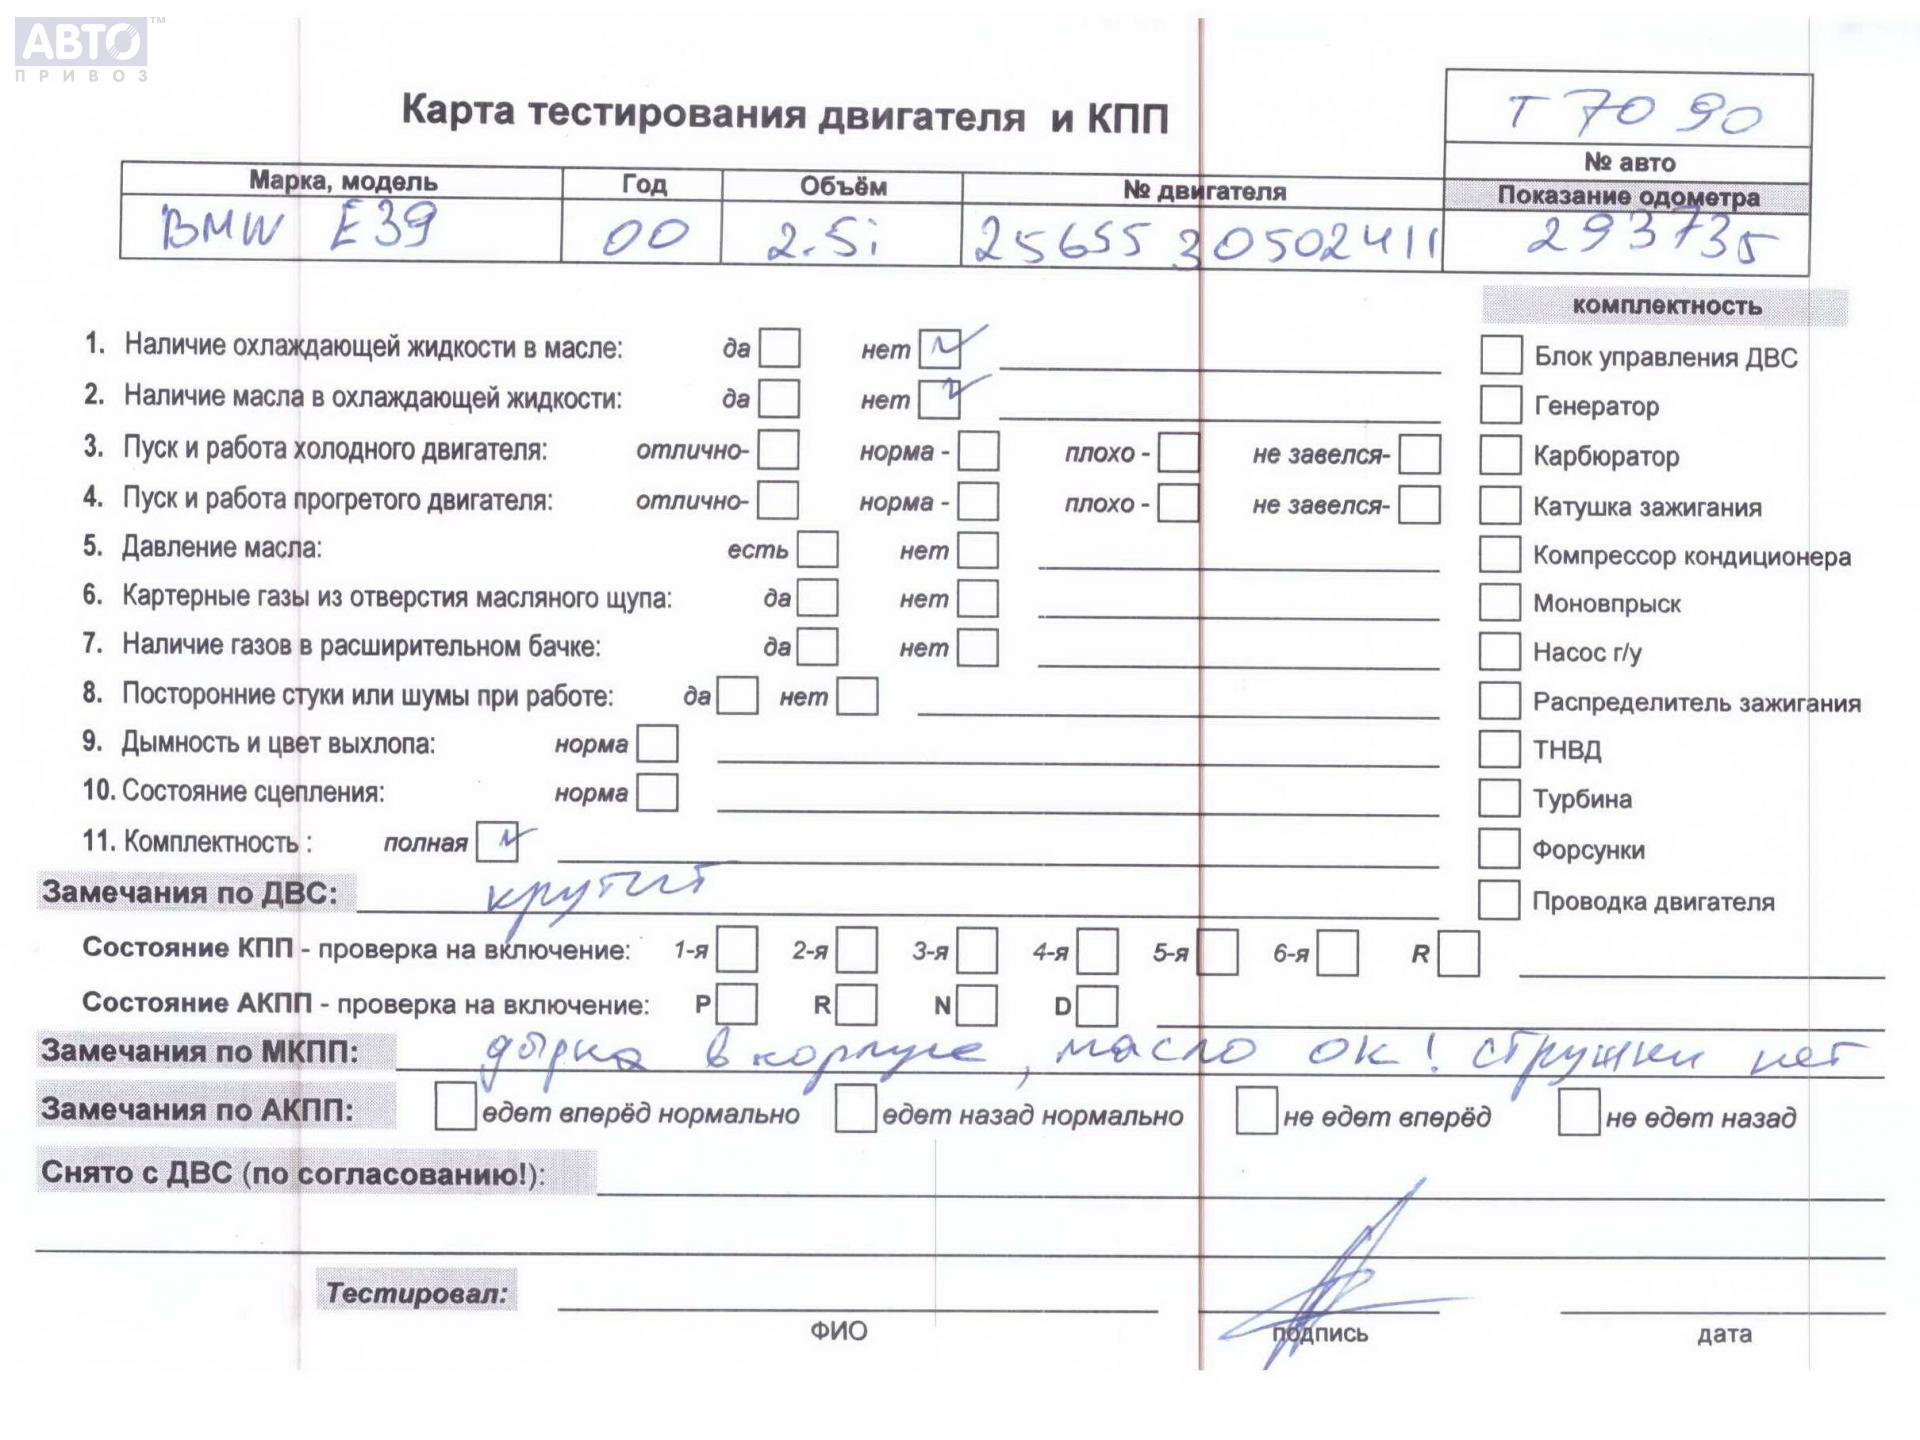 АВТО™
ПРИВОЗ
Карта тестирования двигателя и КПП
Т 7090
№ авто
Марка, модель Год Объём № двигателя Показание одометра
BMW E39 00 2.5i 25655 30502411 293735
комплектность
1. Наличие охлаждающей жидкости в масле: да нет Блок управления ДВС
2. Наличие масла в охлаждающей жидкости: да нет Генератор
3. Пуск и работа холодного двигателя: отлично- норма - плохо - не завелся- Карбюратор
4. Пуск и работа прогретого двигателя: отлично- норма - плохо - не завелся- Катушка зажигания
5. Давление масла: есть нет Компрессор кондиционера
6. Картерные газы из отверстия масляного щупа: да нет Моновпрыск
7. Наличие газов в расширительном бачке: да нет Насос г/у
8. Посторонние стуки или шумы при работе: да нет Распределитель зажигания
9. Дымность и цвет выхлопа: норма ТНВД
10. Состояние сцепления: норма Турбина
11. Комплектность : полная Форсунки
Замечания по ДВС: крутит Проводка двигателя
Состояние КПП - проверка на включение: 1-я 2-я 3-я 4-я 5-я 6-я R
Состояние АКПП - проверка на включение: P R N D
Замечания по МКПП: дырка в корпусе, масло ок! стружки нет
Замечания по АКПП: едет вперёд нормально едет назад нормально не едет вперёд не едет назад
Снято с ДВС (по согласованию!):
Тестировал:
ФИО подпись дата